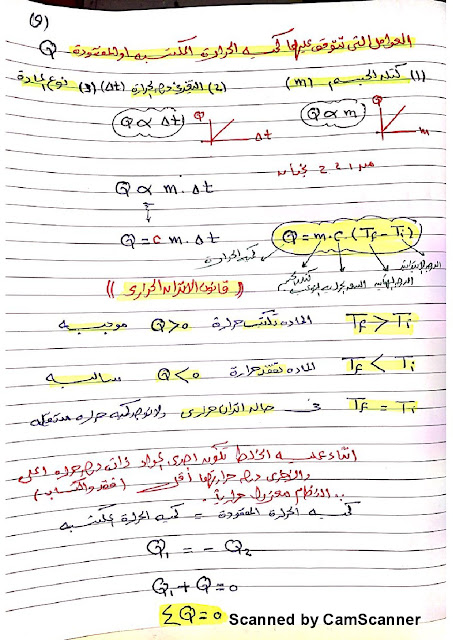 (9)
العوامل التى تتوقف عليها كمية الحرارة المكتسبه او المفقودة Q
(1) كتلة الجسم (m) (2) التغير فى درجة الحرارة (Δt) (3) نوع المادة
Q ∝ m Q m
Q ∝ Δt Q Δt
من 1 ، 2
Q ∝ m . Δt
Q = c m . Δt
Q = m . c . (Tf - Ti)
كمية الحرارة
(( قانون الاتزان الحرارى ))
Tf > Ti المادة تكتسب حرارة Q > 0 موجبه
Tf < Ti المادة تفقد حرارة Q < 0 سالبه
Tf = Ti فى حالة اتزان حرارى ولا توجد كمية حرارة منتقله
اثناء عملية الخلط تكون احدى المواد ذات درجة حرارة اعلى
والاخرى درجة حرارتها أقل (فقد واكتساب)
∴ النظام معزول حرارياً
كمية الحرارة المفقودة = كمية الحرارة المكتسبه
Q1 = - Q2
Q1 + Q = 0
Σ Q = 0
Scanned by CamScanner